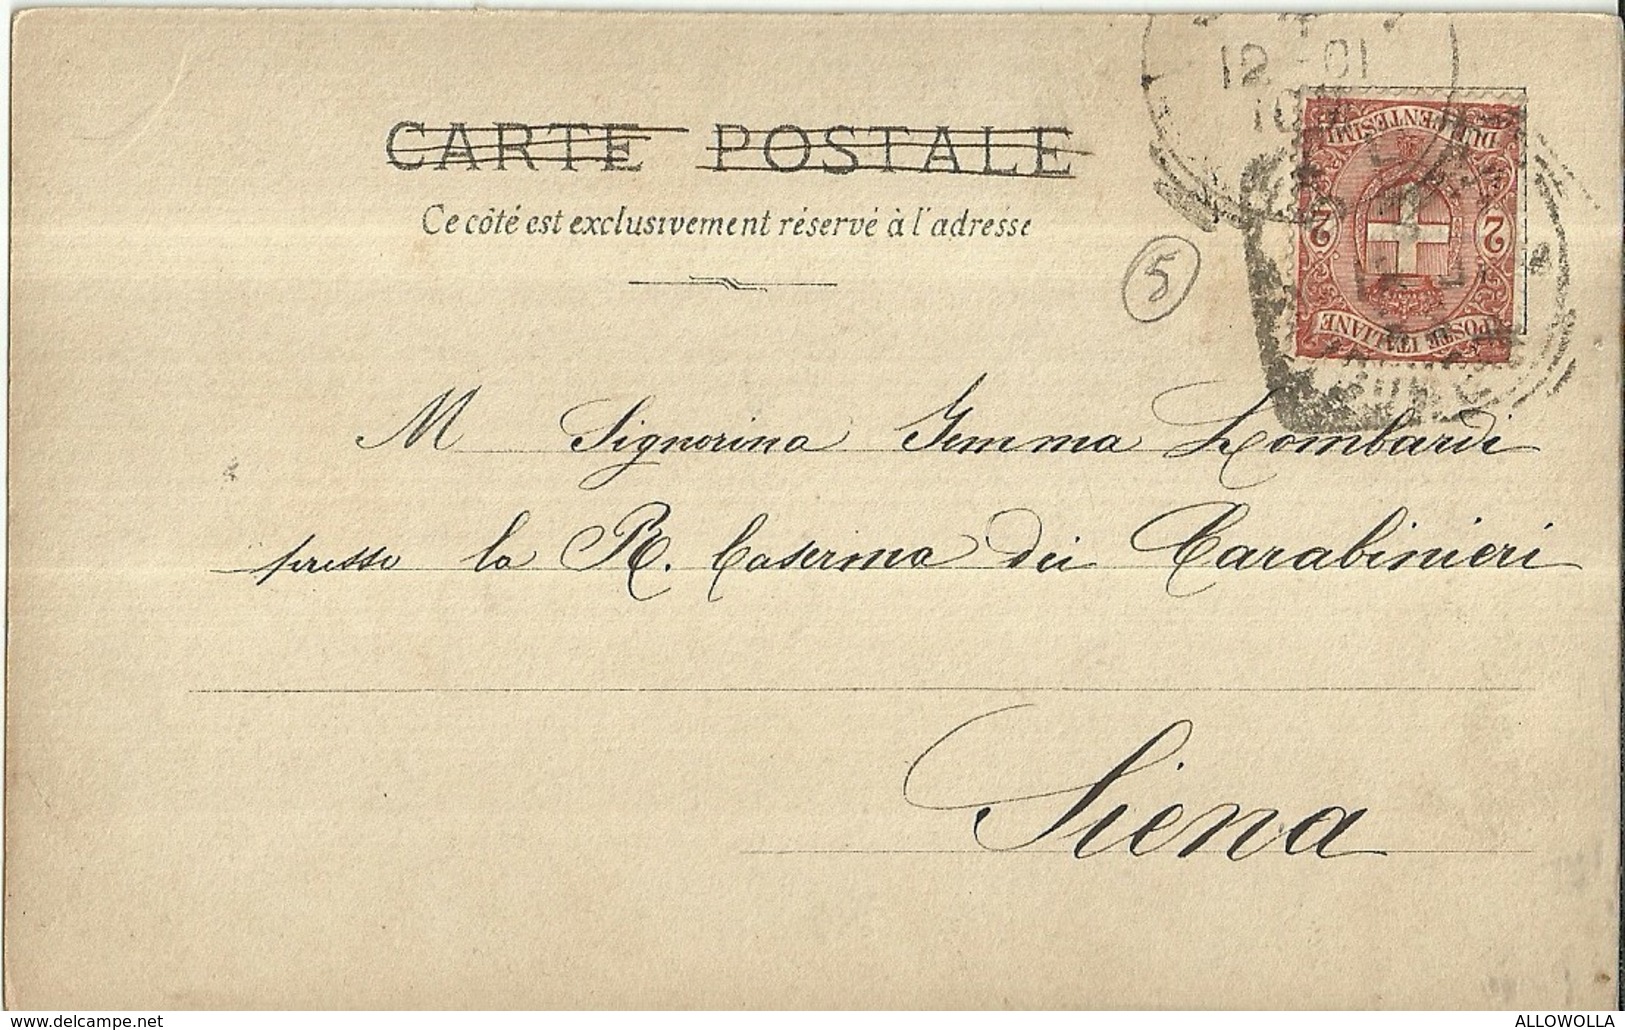 12 - 01
CARTE POSTALE
Ce côté est exclusivement réservé à l'adresse
DUE CENTESIMI
2 2
POSTE ITALIANE
5
M Signorina Gemma Lombardi
presso la R. Caserma dei Carabinieri
Siena
www.delcampe.net
ALLOWOLLA